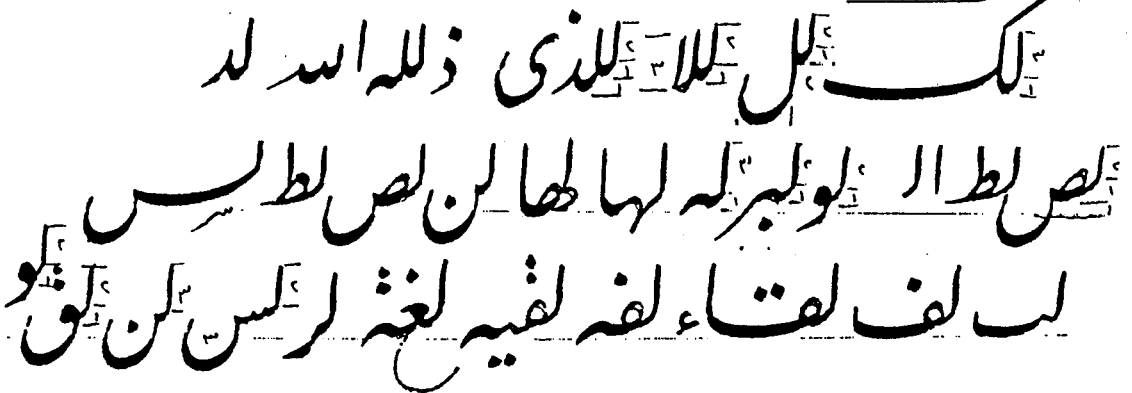 لک لل للا للذی ذلله الله لد
لص لط ال لو لبر له لها لها لن لص لط لس
لب لف لقاء لفه لقیه لغة لر لس لن لق لو